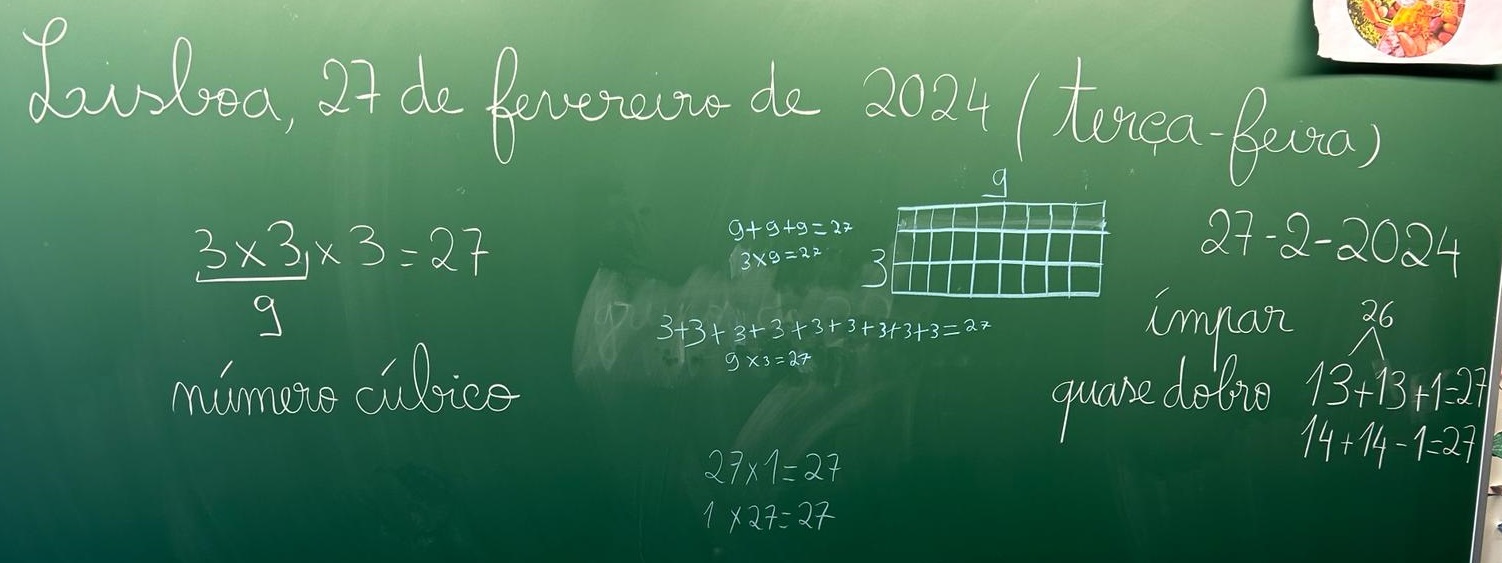 Lisboa, 27 de fevereiro de 2024 (terça-feira)
3x3x3=27
9
número cúbico
9+9+9=27
3x9=27
9
3
3+3+3+3+3+3+3+3+3=27
9x3=27
27x1=27
1x27=27
27-2-2024
ímpar
26
quase dobro 13+13+1=27
14+14-1=27